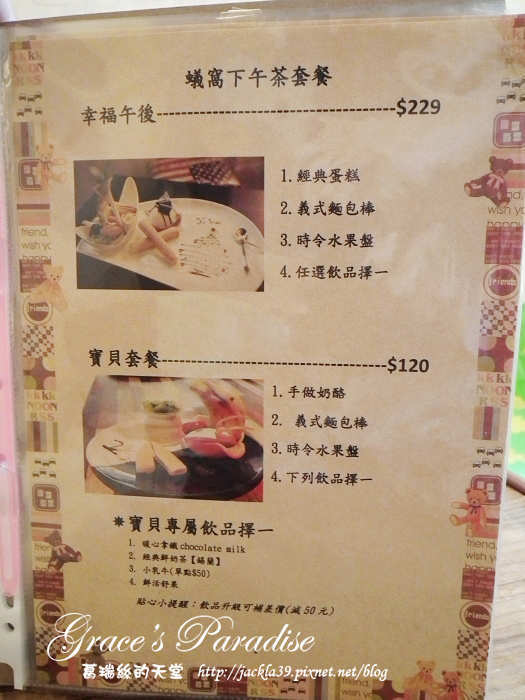 蟻窩下午茶套餐
幸福午後--------------------------------------$229
1.經典蛋糕
2.義式麵包棒
3.時令水果盤
4.任選飲品擇一
寶貝套餐------------------------------------$120
1.手做奶酪
2. 義式麵包棒
3.時令水果盤
4.下列飲品擇一
✷寶貝專屬飲品擇一
1. 暖心拿鐵chocolate milk
2. 經典鮮奶茶【錫蘭】
3. 小乳牛(單點$50)
4. 鮮活舒果
貼心小提醒：飲品升級可補差價(減50元)
Grace's Paradise
葛瑞絲的天堂 http://jackla39.pixnet.net/blog
KKKK
NOON
RSS
friend,
wish yo
happy
friends
KKKK
NOON
RSS
friend
wish yo
wish you
friends
KKKK
NOON
RSS
wish you
friends